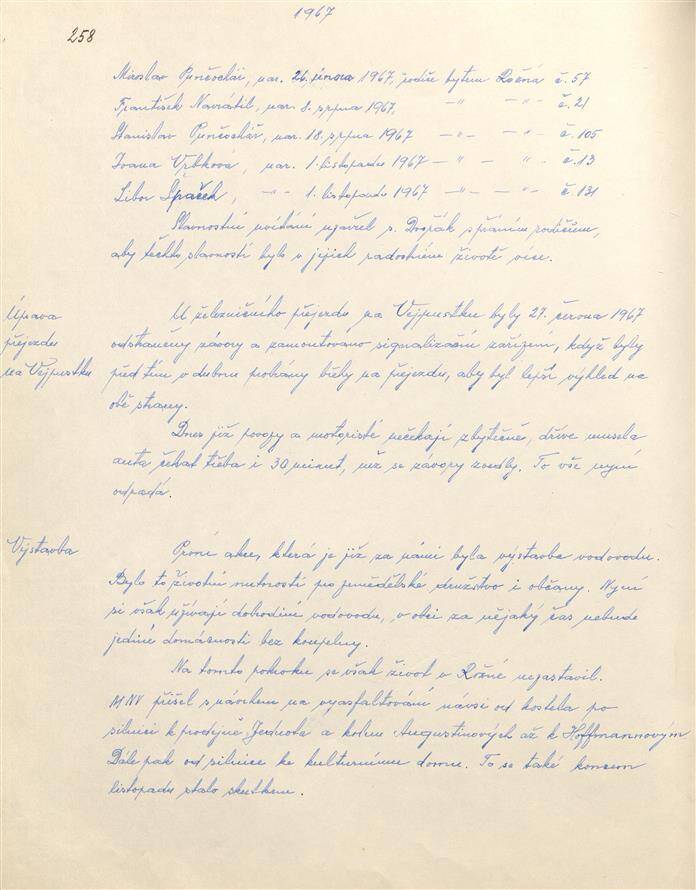 1967
258
Miroslav Punčochář, nar. 26. února 1967, rodiče bytem Rožná č. 57
František Navrátil, nar. 8. srpna 1967, —"— —"— č. 21
Stanislav Punčochář, nar. 18. srpna 1967 —"— —"— č. 105
Ivana Vrbková, nar. 1. listopadu 1967 —"— —"— č. 13
Libor Špaček, —"— 1. listopadu 1967 —"— —"— č. 131
Slavnostní uvítání uzavřel s. Dvořák s přáním rodičům,
aby těchto slavností bylo v jejich radostném životě více.
Úprava
přejezdu
na Vejpustku
U železničního přejezdu na Vejpustku byly 27. června 1967
odstraněny závory a zamontováno signalizační zařízení, když byly
před tím v dubnu pokáceny břehy na přejezdu, aby byl lepší výhled na
obě strany.
Dnes již povozy a motoristé nečekají zbytečně, dříve musela
auta čekat třeba i 30 minut, než se závory zvedly. To vše nyní
odpadá.
Výstavba
První akce, která je již za námi byla výstavba vodovodu.
Bylo to životní nutností pro zemědělské družstvo i občany. Nyní
si však užívají dobrodiní vodovodu, v obci za nějaký čas nebude
jediné domácnosti bez koupelny.
Na tomto pokroku se však život v Rožné nezastavil.
MNV přišel s návrhem na vyasfaltování návsi od kostela po
silnici k prodejně Jednota a kolem Augustinových až k Hoffmannovým
Dále pak od silnice ke kulturnímu domu. To se také koncem
listopadu stalo skutkem.